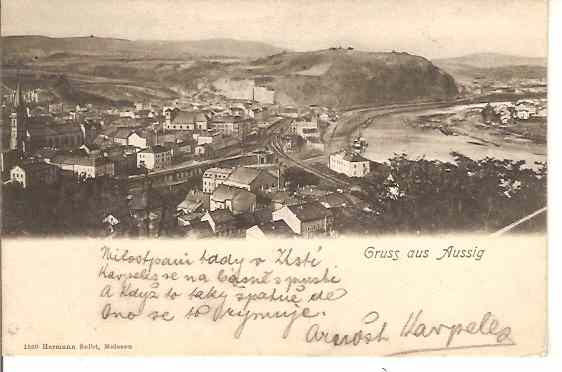 Gruss aus Aussig
Milostpani tady v Ústí
Karpeles se na básně pustí
A když to taky špatně de
Ono se to rýmuje.
Arnošt Karpeles
1380 Hermann Seibt, Meissen